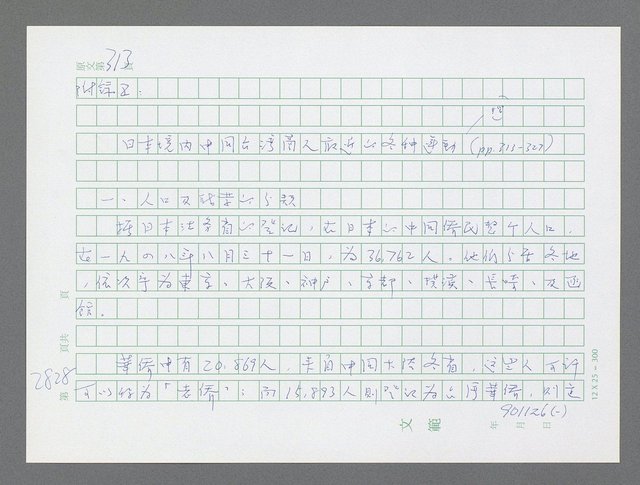 原文第313頁
附錄五：
日本境內中國台灣商人最近的各種運動 (pp.313-327)
一、人口及活業的分類
據日本法務省的登記，在日本的中國僑民整个人口，
在一九四八年八月三十一日，為36,762人。他們分居各地
，依次序為東京、大阪、神戶、京都、橫濱、長崎、及函
館。
華僑中有20,869人，來自中國大陸各省，這些人可許
可以作為「老僑」；而15,893人則登記為台灣華僑，則這
2828
第 頁共 頁
12 X 25 = 300
901126(一)
文範
年 月 日